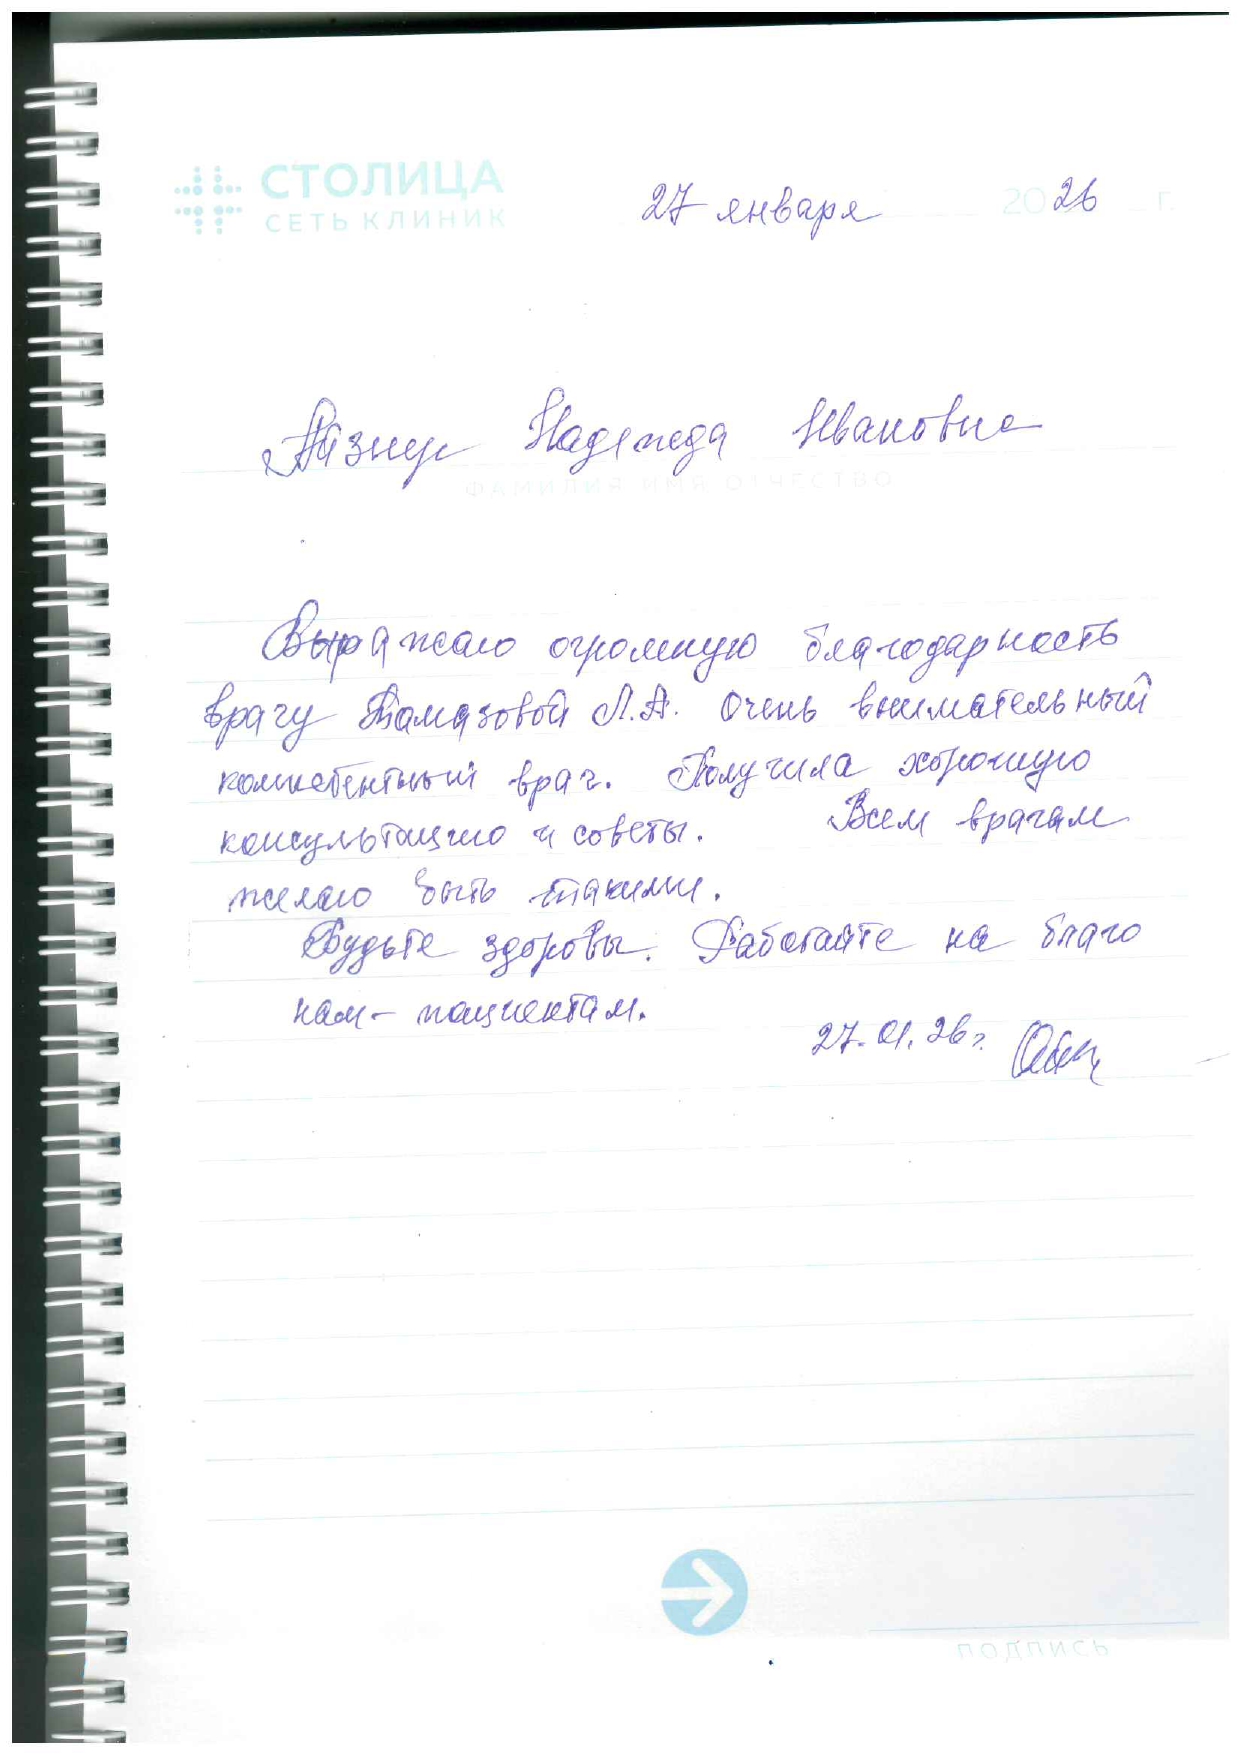 СТОЛИЦА
СЕТЬ КЛИНИК
27 января 2026 г.
Надежда Ивановна
ФАМИЛИЯ ИМЯ ОТЧЕСТВО
Выражаю огромную благодарность
врачу Томазовой Л.А. Очень внимательный
компетентный врач. Получила хорошую
консультацию и советы. Всем врачам
желаю быть такими.
Будьте здоровы. Работайте на благо
нам - пациентам.
27.01.26 г.
ПОДПИСЬ